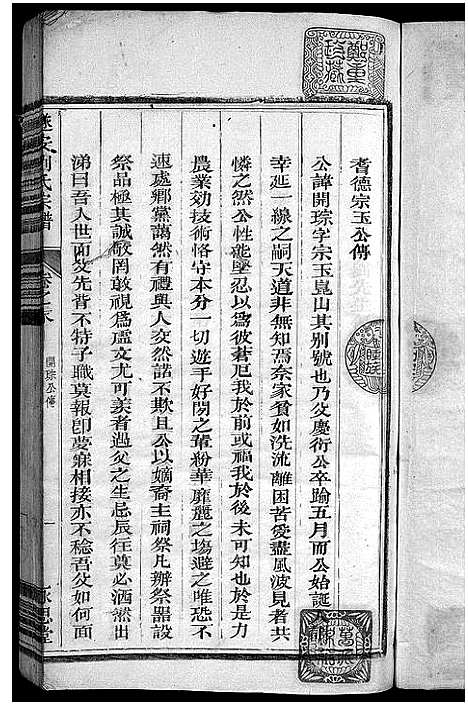 耆德宗玉公傳
公諱開琮字宗玉崑山其別號也乃父慶衍公卒踰五月而公始誕
幸延一線之嗣天道非無知焉奈家貧如洗流離困苦愛盡風波見者共
憐之然公性能堅忍以為彼蒼厄我於前或福我於後未可知也於是力
農業効技術恪守本分一切遊手好閒之輩粉華靡麗之塲避之唯恐不
速處鄉黨藹然有禮與人交然諾不欺且公以嫡裔主祠祭凡辦祭器設
祭品極其誠敬罔敢視為虛文尤可羨者過父之生忌辰往奠必洒然出
涕曰吾人世而父先背不特子職莫報卽夢寐相接亦不稔吾父如何面
遂安劉氏宗譜
卷之末
開琮公傳
一
永思堂
鄭重珍藏